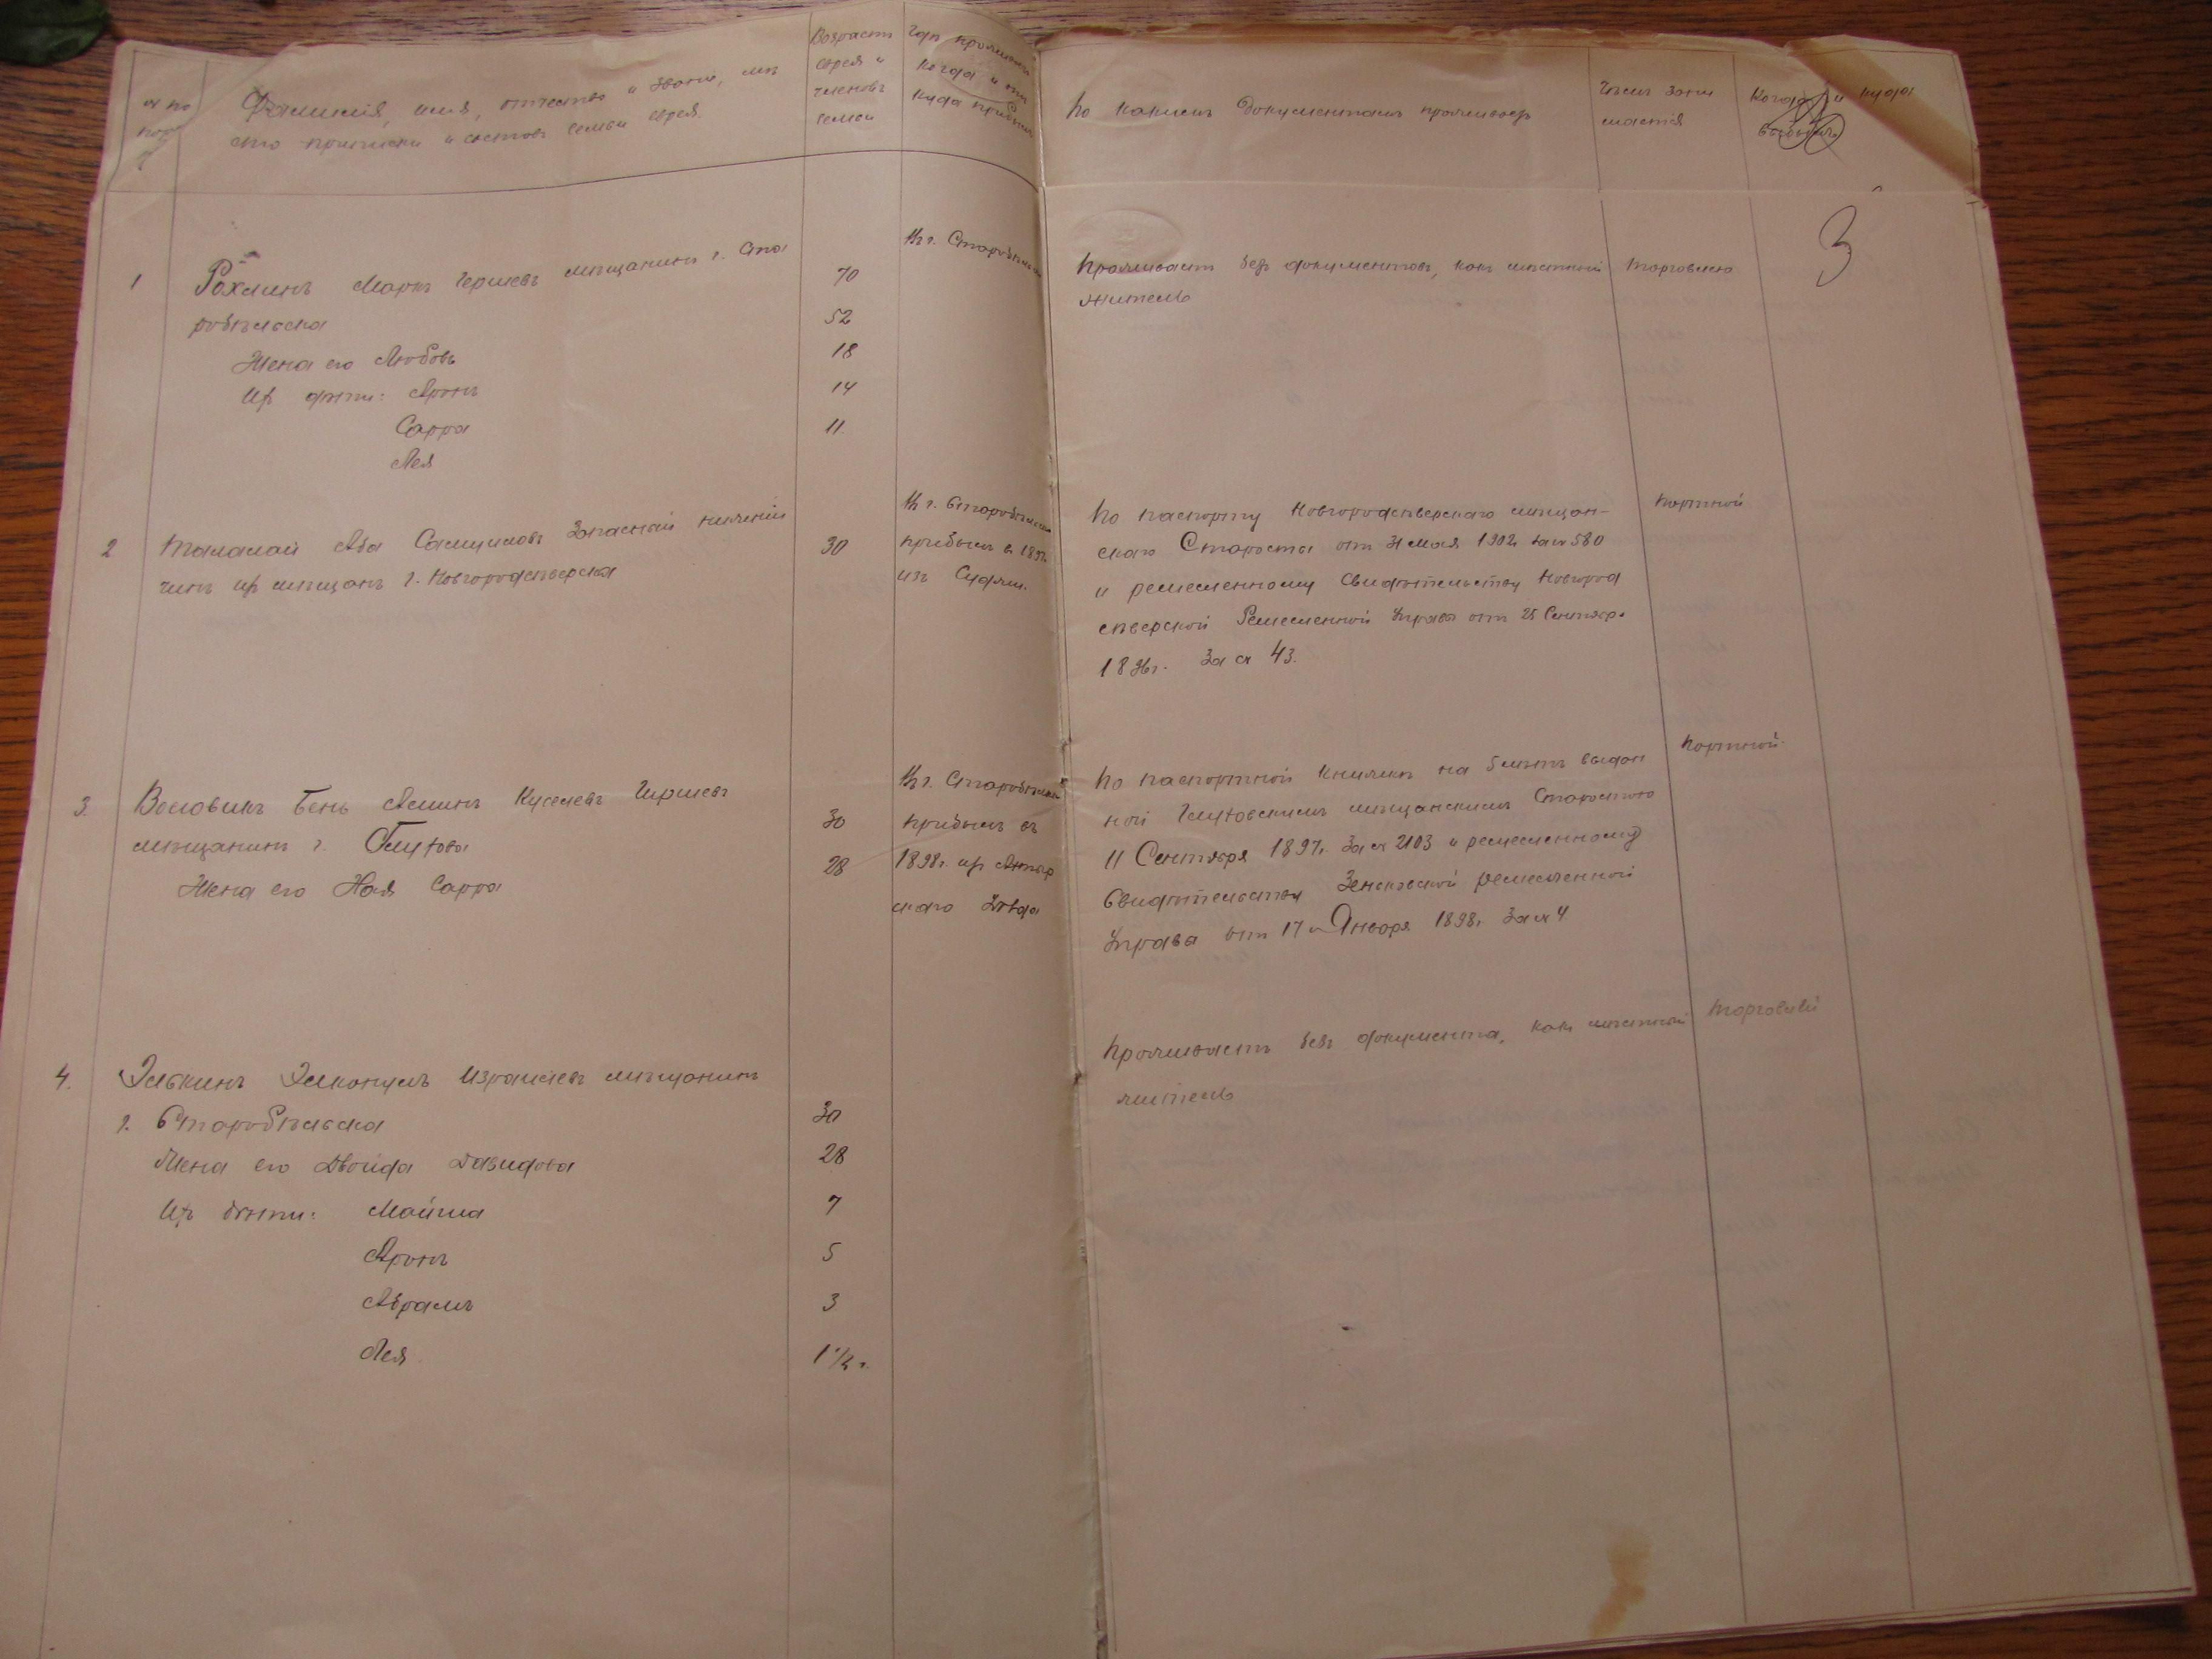 № по
Фамилія, имя, отчество и званіе, мѣ
сто приписки и составъ семьи еврея.
Возрастъ
еврея и
членовъ
семьи
Гдѣ проживаетъ
когда и отъ
куда прибылъ
По какимъ документамъ проживаетъ
Чѣмъ зани
мается
Когда и куда
выбылъ
3
1
Рохлинъ Маркъ Гершевъ мѣщанинъ г. Ста
робѣльска
Жена его Любовь
Их дѣти: Аронъ
Сарра
Лея
70
52
18
14
11
Въ г. Старобѣльскѣ
Проживаетъ безъ документовъ, какъ мѣстный
житель
Торговлею
2
Таламай Аба Самуиловъ Запасный нижній
чинъ изъ мѣщанъ г. Новгородсѣверска
30
Въ г. Старобѣльскѣ
прибылъ въ 1897г.
изъ Суджи.
По паспорту Новгородсѣверскаго мѣщан-
скаго Старосты отъ 31 Мая 1902г. за № 580
и ремесленному Свидѣтельству Новгород
сѣверской Ремесленной Управы отъ 25 Сентябр.
1896г. За № 43.
Портной
3.
Восовикъ Бень Аминъ Куселевъ Гиршевъ
мѣщанинъ г. Глухова
Жена его Хая Сарра
30
28
Въ г. Старобѣльскѣ
прибылъ въ
1898г. изъ
скаго Уѣзда
По паспортной книжкѣ на 5 лѣтъ выдан
ной Глуховскимъ мѣщанскимъ Старостою
11 Сентября 1897г. За № 2103 и ремесленному
Свидѣтельству Зеньковской ремесленной
Управы отъ 17го Января 1898г. За № 4
Портной
4.
Элькинъ Элконумъ Израилевъ мѣщанинъ
г. Старобѣльска
Жена его Двойда Давидова
Их дѣти: Майша
Аронъ
Абрамъ
Лея
30
28
7
5
3
1 1/2 г.
Проживаетъ безъ документа, какъ мѣстный
житель
Торговлей